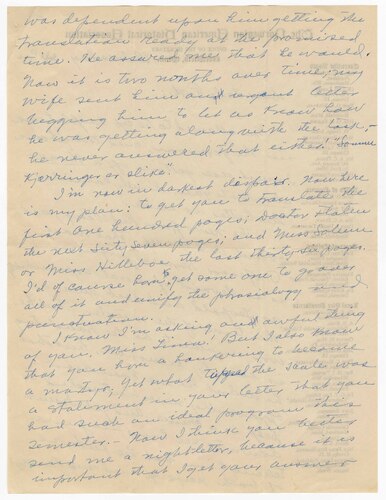 was dependent upon him getting the
translation ready at the promised
time. He assured me that he would.
Now it is two months over time; my
wife sent him an urgent letter
begging him to let us know how
he was getting along with the task,-
he never answered that either.
Kjerringer er slike".
I'm now in darkest despair. Now here
is my plan: to get you to translate the
first one hundred pages; Doctor
the next sixty seven pages; and Miss Solem
or Miss Hilleboe the last thirty six pages.
I'd of course have to get some one to go over
all of it and unify the phrasiology and
punctuation.
I know I'm asking an awful thing
of you, Miss But I also know
that you have a hankering to become
a martyr; yet what tipped the scales was
a statement in your letter that you
had such an ideal program this
semester.- Now I think you better
send me a nightletter, because it is
important that I get your answer